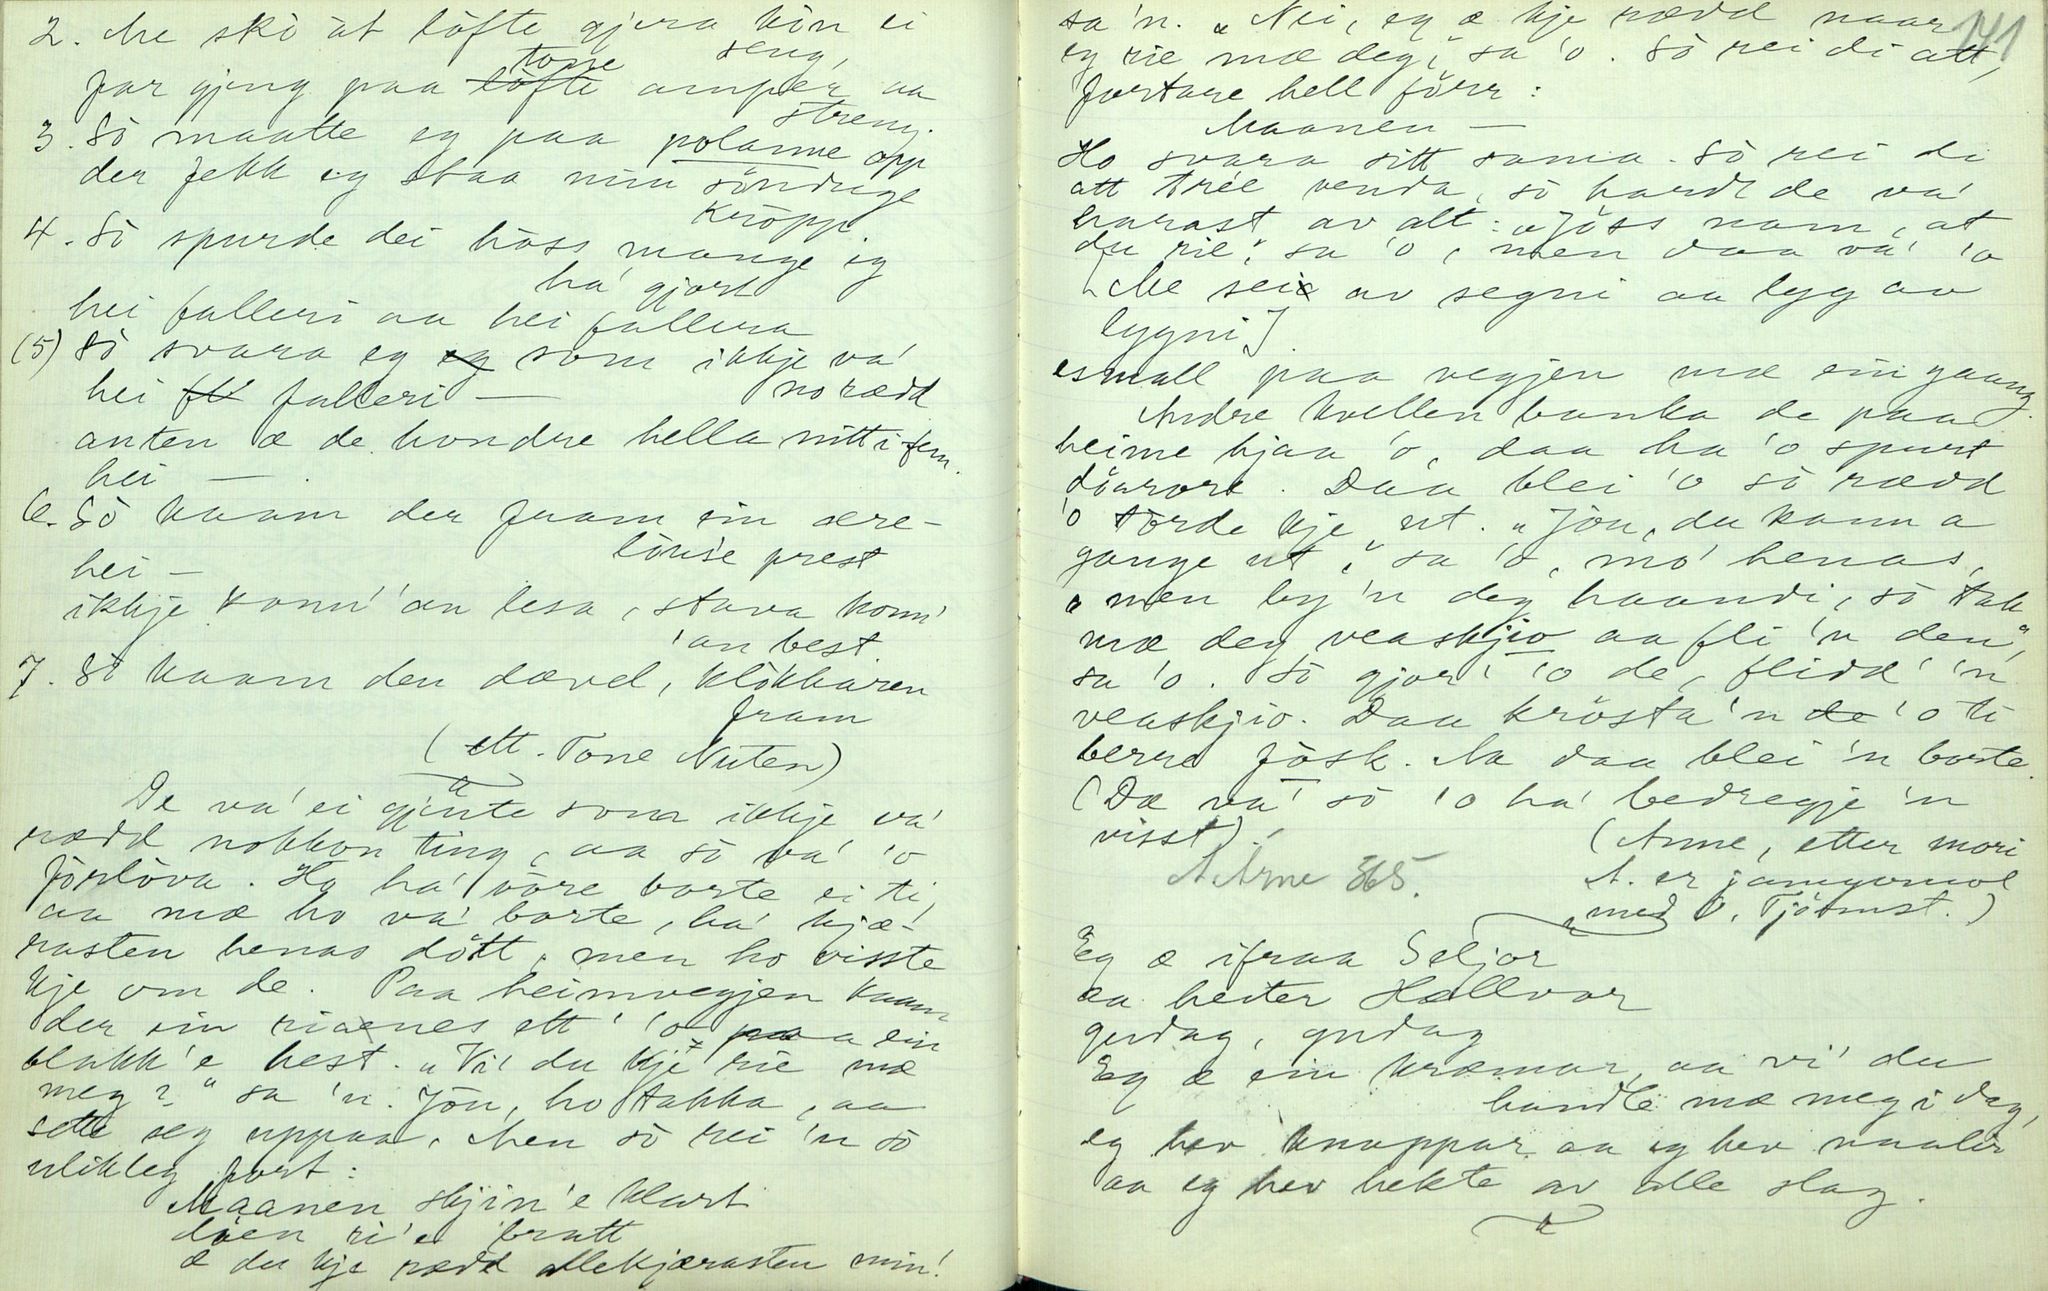 2. Me ski åt löfte gjera kön ei
seng,
far gjeng paa tosse amper aa
streng.
3. Sò maatte eg paa polanne opp
der fekk eg staa min söndrige
kropp.
4. Sò spurde dei hoss mange eg
ha' gjort
hei falleri aa hei fallera
(5) Sò svara eg som ikkje va'
no rædd
hei falleri —
anten æ de hondre hella nitti fem.
hei —
6. Sò kaam der fram ein ære-
löuse prest
hei —
ikkje konn' 'an lesa, stava konn'
'an best.
7. Sò kaam den dævel, klòkkaren
fram
(ett. Tone Nuten)
De va' ei gjente som ikkje va'
rædd nokkon ting, aa sò va' 'o
förlòva. Ho ha' vòre borte ei ti,
aa mæ ho va' borte, ha' kjæ-
rasten henas dött, men ho visste
kje om de. Paa heimvegjen kaam
der ein riaenes ett' 'o paa ein
blakk'e hest. "Vi' du kje rie mæ
meg?" sa 'n. Jön, ho takka, aa
sette seg uppaa. Men sò rei 'n sò
ulikleg fort:
Maanen skjin'e klart
döen ri'e bratt
æ du kje rædd allekjærasten min!
141
sa 'n. "Nei, eg æ kje rædd naar
eg rie mæ deg," sa 'o. Sò rei di att,
fortare hell förr:
Maanen —
Ho svara sitt sama. Sò rei di
att tréé venda, sò hardt de va'
harast av alt: "Jöss namn, at
du rie," sa 'o, men daa va' 'o
[Me sei av segni aa lyg av
lygni]
esmall paa vegjen mæ ein gaang.
Andre kvellen banka de paa
heime hjaa 'o, daa ha 'o spurt
döarore. Daa blei 'o sò rædd
'o tòrde kje ut. "Jön, du kann a
gange ut," sa 'o, mo' henas,
"men by 'n deg haandi, sò tak
mæ deg veaskjio aa fli 'n den",
sa 'o. Sò gjor' 'o de, flidd' 'n
veaskjio. Daa kròsta 'n 'o ti
berre fòsk. Na daa blei 'n borte.
(Dæ va' sò 'o ha' bedregje 'n
visst).
(Anne, etter mori
A. er jamgomol
med O. Tjònnst.)
A Arne 365.
Eg æ ifraa Seljor
aa heiter Hallvor
gudag, gudag
Eg æ ein kræmar, aa vi' du
handle mæ meg i dag,
eg hev knappar aa eg hev naaler
aa eg hev hekte av alle slag.